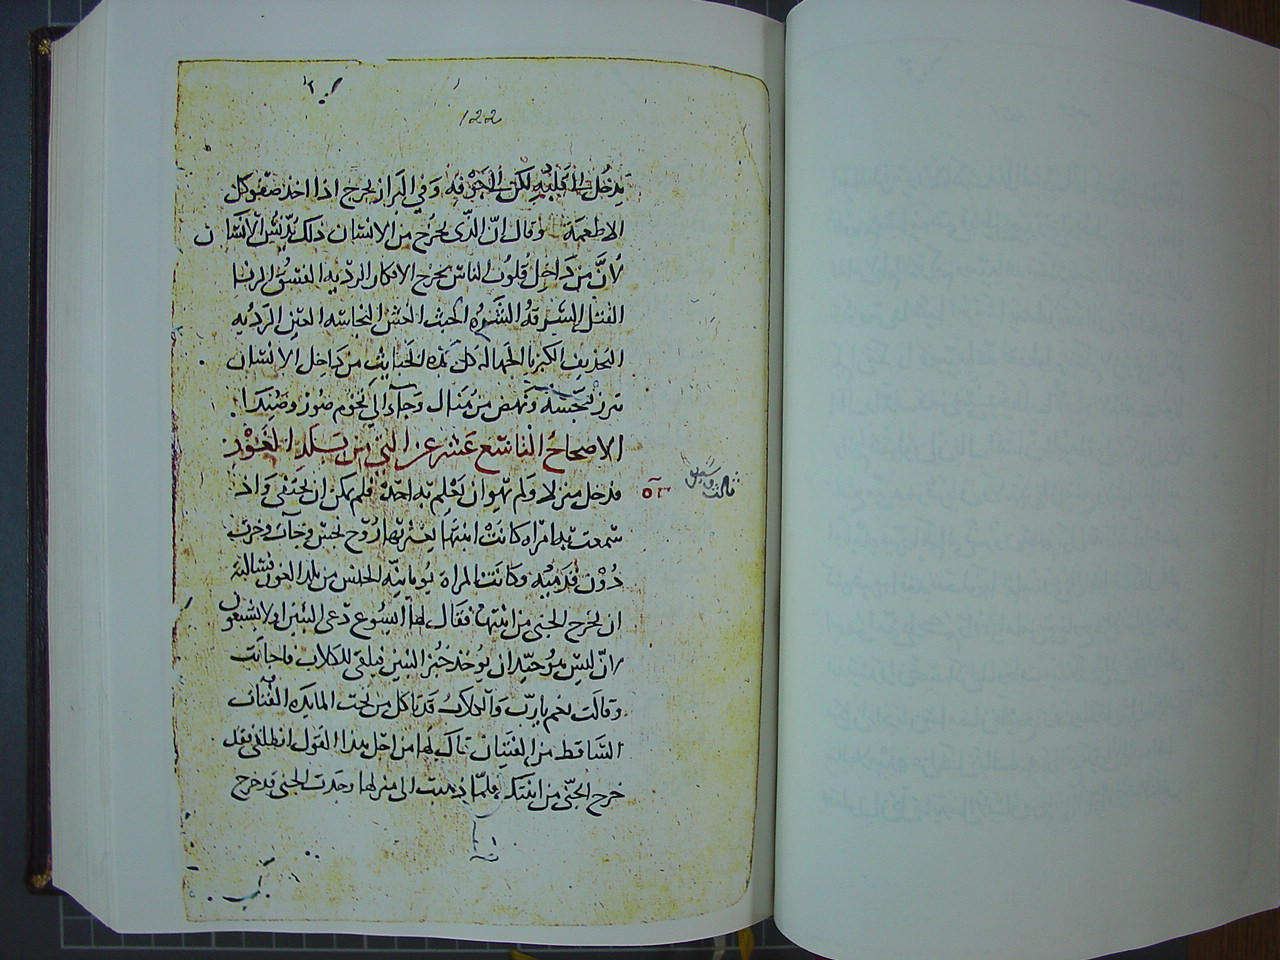 122
يدخل الى قلبه لكن الى جوفه وفي البراز يخرج اذا اخذ صفو كل
الاطعمة وقال ان الذي يخرج من الانسان ذلك يدنس الانسان
لان من داخل قلوب الناس يخرج الافكار الرديه الفسق الزنا
القتل السرقه الشره الخبث الغش النجاسه العين الرديه
التجديف الكبريا الجهاله كل هذه الخبايث من داخل الانسان
تبرز تنجسه ونهض من هناك وجآء الي تخوم صور وصيدا
الاصحاح التاسع عشر عن التي من بلد الغور
فدخل منزلا ولم يهو ان يعلم به احد فلم يمكن ان يختفي واذ
سمعت به امراه كانت ابنتها يعتريها روح نجس فجآت وخرت
دون قدميه وكانت المراة يونانيه الجنس من بلد الغور فسالته
ان يخرج الجني من ابنتها فقال لها ايسوع دعي البنين اولا يشبعون
انه ليس بوحيد ان يوخذ خبز البنين فيلقى للكلاب فاجابت
وقالت نعم يارب والكلاب قد تاكل من تحت المايده الفتات
الساقط من الفتيان قال لها من اجل هذا القول انطلقي فقد
خرج الجني من ابنتك فلما ذهبت الى منزلها وجدت الجني قد خرج